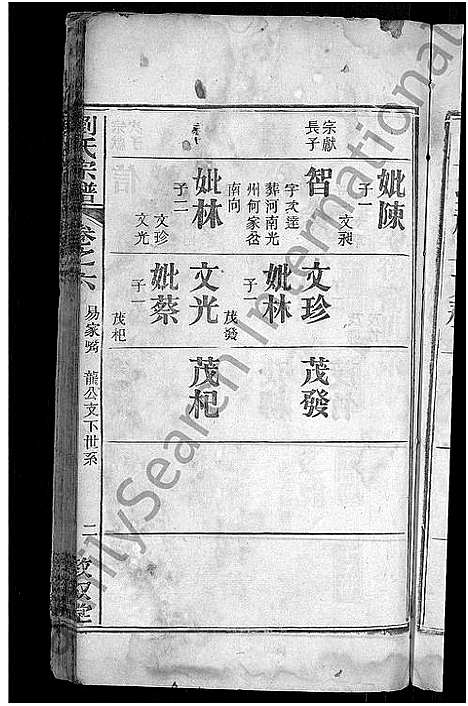 妣陳
子一
文昶
宗獻
長子
智
字文達
葬河南光
州何家岔
南向
妣林
子二
文珍
文光
文珍
妣林
子一
茂發
文光
妣蔡
子一
茂杞
茂發
茂杞
劉氏宗譜
卷之六
易家嘴 龍公支下世系
二
FamilySearch International